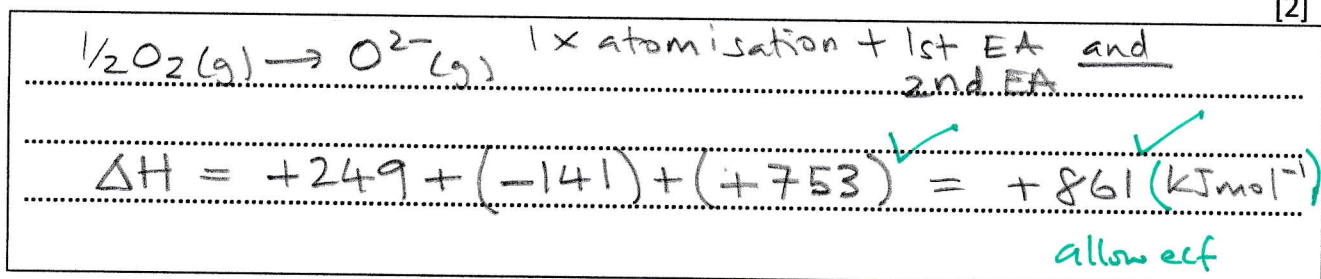 [2]
½O₂(g) → O²⁻(g) 1 x atomisation + 1st EA and
2nd EA
ΔH = +249 + (-141) + (+753) ✓ = +861 ✓ (kJmol⁻¹)
allow ecf